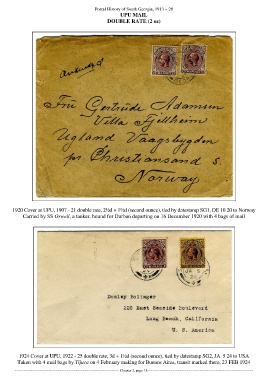 Postal History of South Georgia, 1911 – 28
UPU MAIL
DOUBLE RATE (2 oz)
Frü Gertrüde Adamsen
Villa Fjellheim
Ugland Vaagsbygden
pr Christianssand S
Norway
1920 Cover at UPU, 1907 - 21 double rate, 2½d + 1½d (second ounce), tied by datestamp SG1, DE 10 20 to Norway
Carried by SS a tanker, bound for Durban departing on 16 December 1920 with 4 bags of mail
Dunlop Bolinger
228 East Seaside Boulevard
Long Beach, California
U. S. America
1924 Cover at UPU, 1922 - 25 double rate, 3d + 1½d (second ounce), tied by datestamp SG2, JA 5 24 to USA
Taken with 4 mail bags by Tijuca on 4 February making for Buenos Aires, transit marked there, 23 FEB 1924